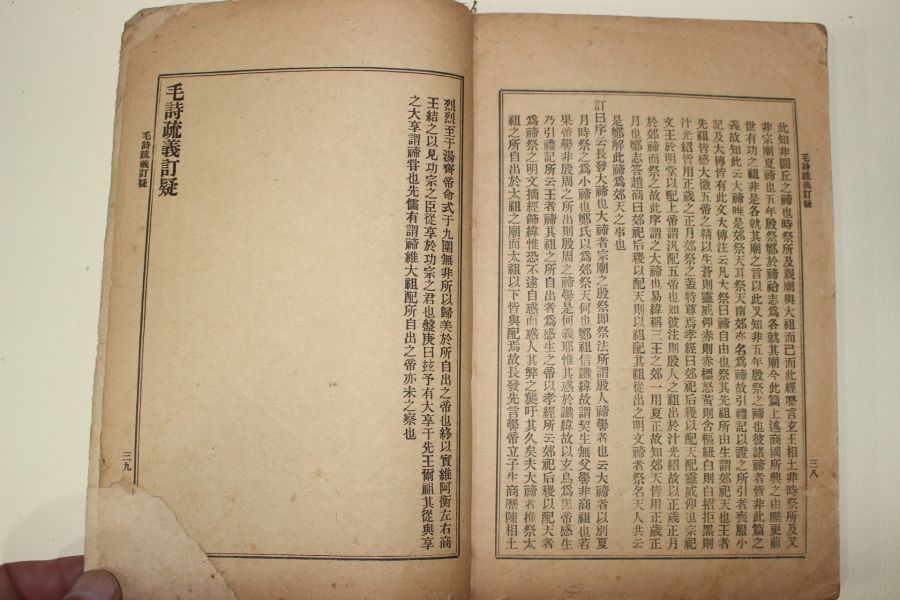 毛詩疏義訂疑
三八
此知非圜丘之禘也時祭所及親廟與大祖而已而此經歷言玄王相土非時祭所及又
非宗廟夏禘也五年殷祭鄭於禘祫志爲各就其廟今此篇上述商國所興之由歷更前
世有功之祖非是各就其廟之言以此又知非五年殷祭之禘也彼諸禘者皆非此篇之
義故知此云大禘唯是郊祭天耳祭天南郊亦名爲禘故引禮記以證之所引者喪服小
記及大傳皆有此文大傳注云凡大祭曰禘自由也祭其先祖所由生謂郊祀天也王者
先祖皆感大微五帝之精以生蒼則靈威仰赤則赤熛怒黃則含樞紐白則白招拒黑則
汁光紀皆用正歲之正月郊祭之蓋特尊焉孝經曰郊祀后稷以配天配靈威仰也宗祀
文王於明堂以配上帝謂汎配五帝也如彼注則殷人之祖出於汁光紀故以正歲正月
於郊禘而祭之故此序謂之大禘也易緯稱三王之郊一用夏正故知郊天皆用正歲正
月也鄭志答趙商曰郊祀后稷以配天則以祖配其祖從出之明文禘者祭名天人共云
是鄭解此禘爲郊天之事也
訂曰序云長發大禘也大禘者宗廟之殷祭即祭法所謂殷人禘嚳者也云大禘者以別夏
月時祭之爲小禘也鄭氏以爲郊祭天何也鄭祖信讖緯故謂契生無父嚳非商祖也若
果帝嚳非殷周之所出則殷周之禘嚳是何義耶惟其惑於讖緯故以玄鳥爲黑帝感生
乃引禮記所云王者禘其祖之所自出者爲感生之帝以孝經所云郊祀后稷以配天者
爲禘祭之明文摘經飾緯惟恐不逮自惑而惑人其弊之襲吁其久矣夫大禘者推祭太
祖之所自出於太祖之廟而太祖以下皆與配焉故長發先言嚳帝立子生商歷陳相土
烈烈至于湯齊帝命式于九圍無非所以歸美於所自出之帝也終以實維阿衡左右商
王結之以見功宗之臣從享於功宗之君也盤庚曰玆予有大享于先王爾祖其從與享
之大享謂禘嘗也先儒有謂禘維大祖配所自出之帝亦未之察也
毛詩疏義訂疑
毛詩疏義訂疑
三九